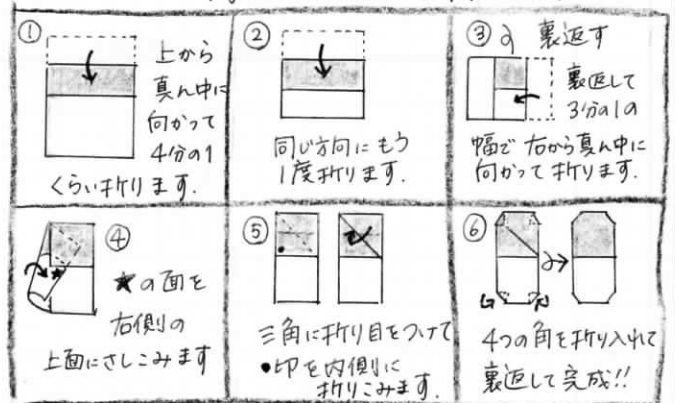 ①
上から
真ん中に
向かって
4分の1
くらい折ります.
②
同じ方向にもう
1度折ります.
③ 裏返す
裏返して
3分の1の
幅で右から真ん中に
向かって折ります.
④
★の面を
右側の
上面にさしこみます
⑤
三角に折り目をつけて
●印を内側に
折りこみます.
⑥
4つの角を折り入れて
裏返して完成!!